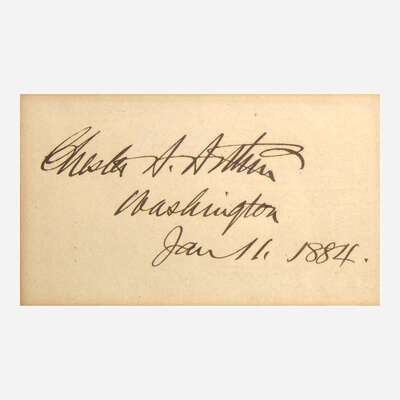 Chester A. Arthur
Washington
Jan 11. 1884.